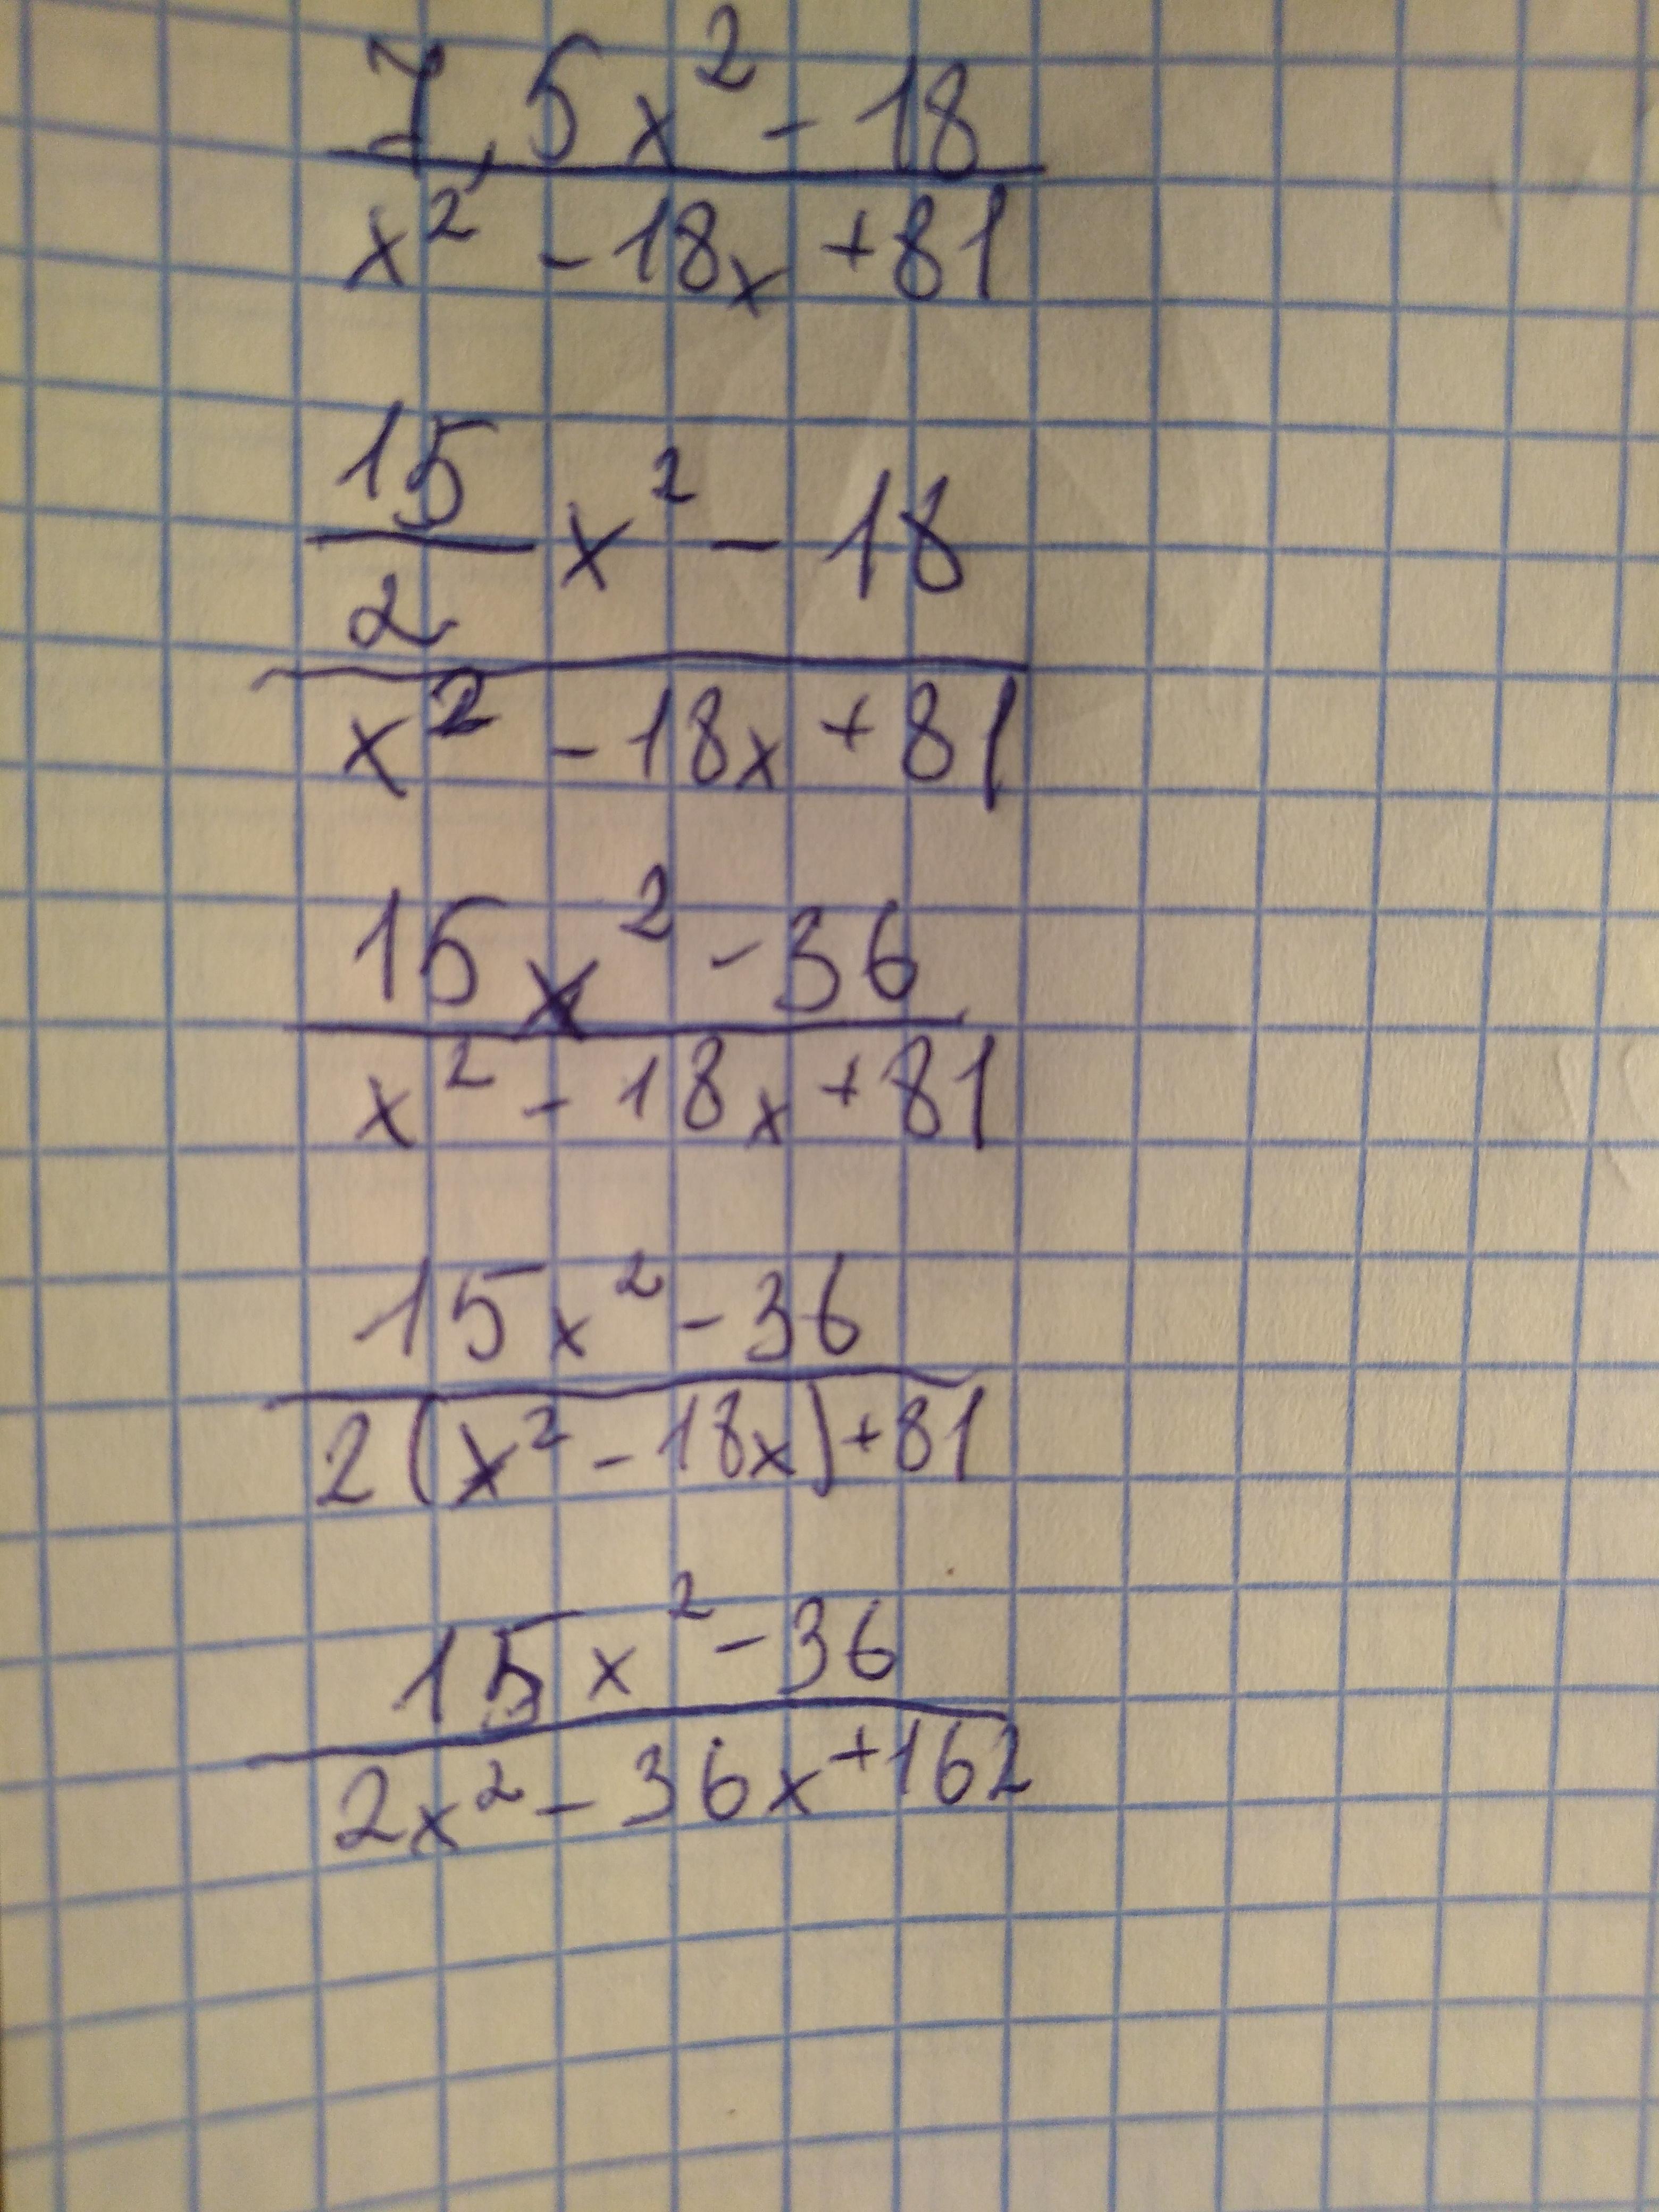 7,5x² - 18
x² - 18x + 81
15
2
x² - 18
x² - 18x + 81
15x² - 36
x² - 18x + 81
15x² - 36
2(x² - 18x) + 81
15x² - 36
2x² - 36x + 162